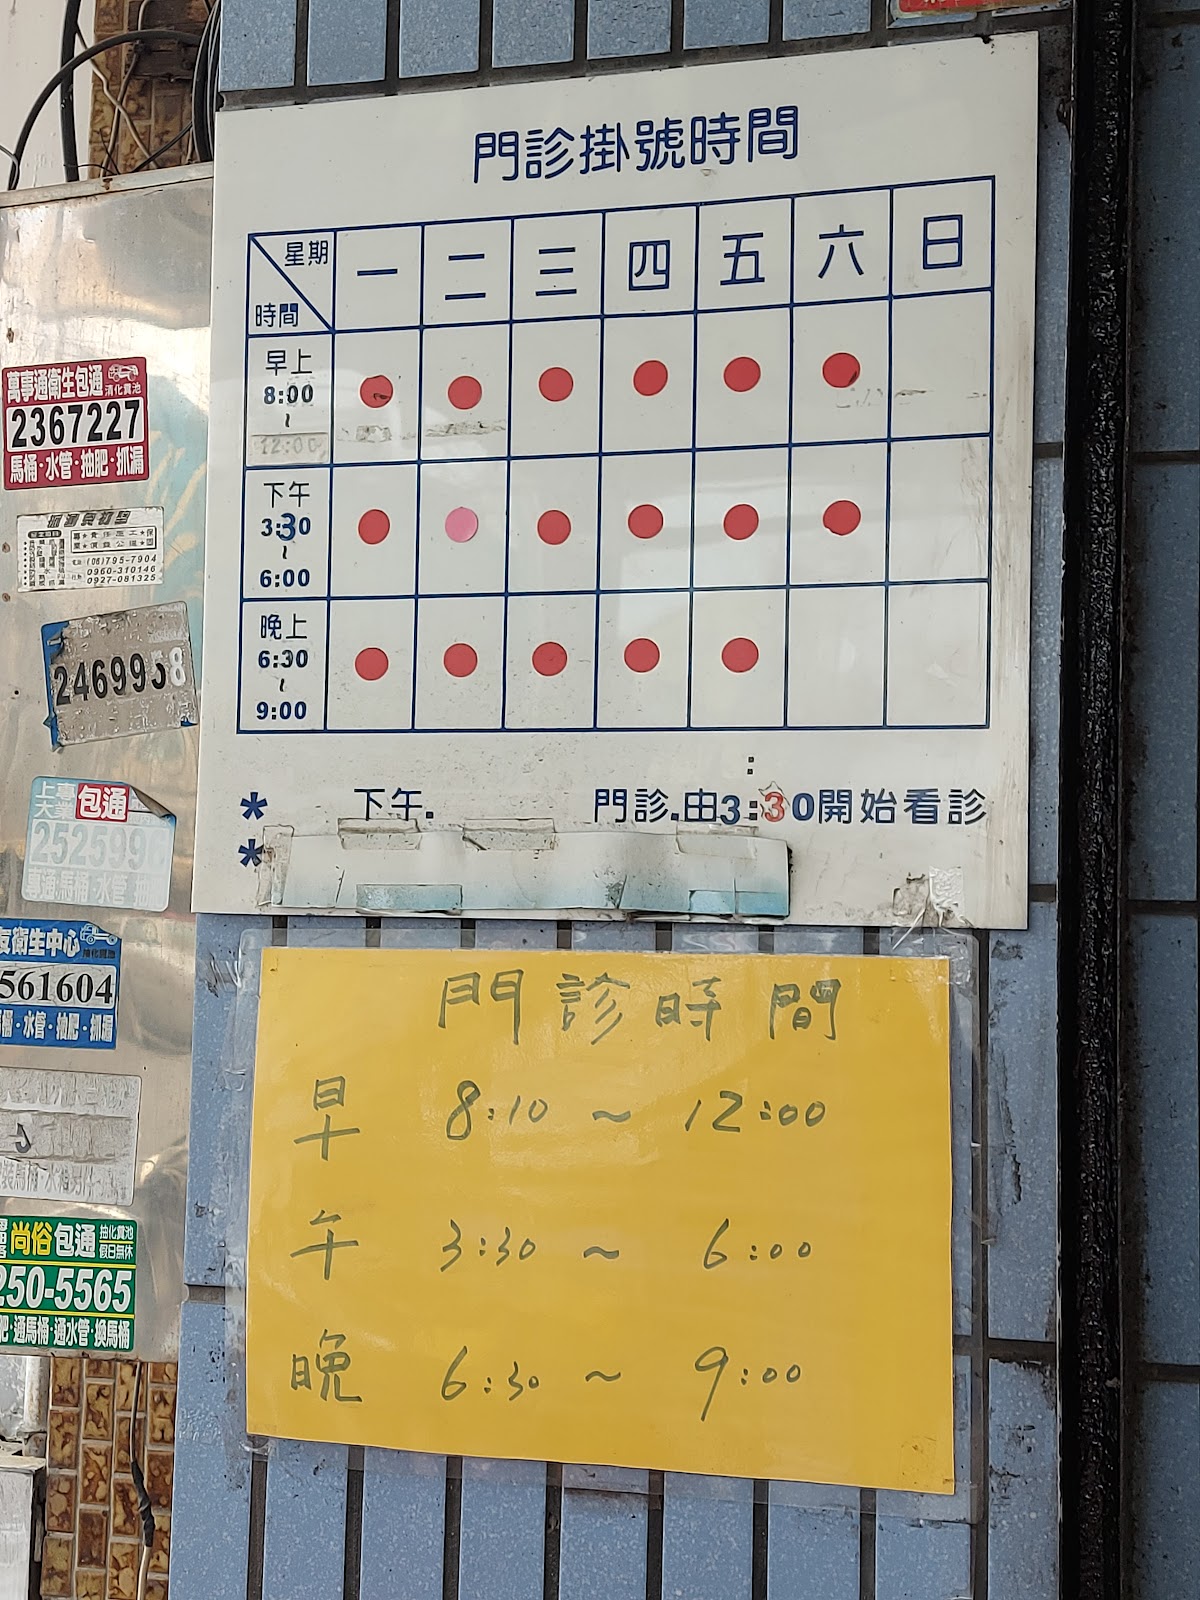 門診掛號時間
星期
時間
一 二 三 四 五 六 日
早上
8:00
~
12:00
下午
3:30
~
6:00
晚上
6:30
~
9:00
* 下午. 門診.由3:30開始看診
*
門診時間
早 8:10 ~ 12:00
午 3:30 ~ 6:00
晚 6:30 ~ 9:00
萬事通衛生包通
2367227
馬桶·水管·抽肥·抓漏
(06)795-7904
0960-310146
0927-081325
2469958
上專
大業
包通
252599
專通:馬桶·水管·抽
友衛生中心
561604
桶·水管·抽肥·抓漏
尚俗包通
抽化糞池
假日無休
250-5565
肥·通馬桶·通水管·換馬桶